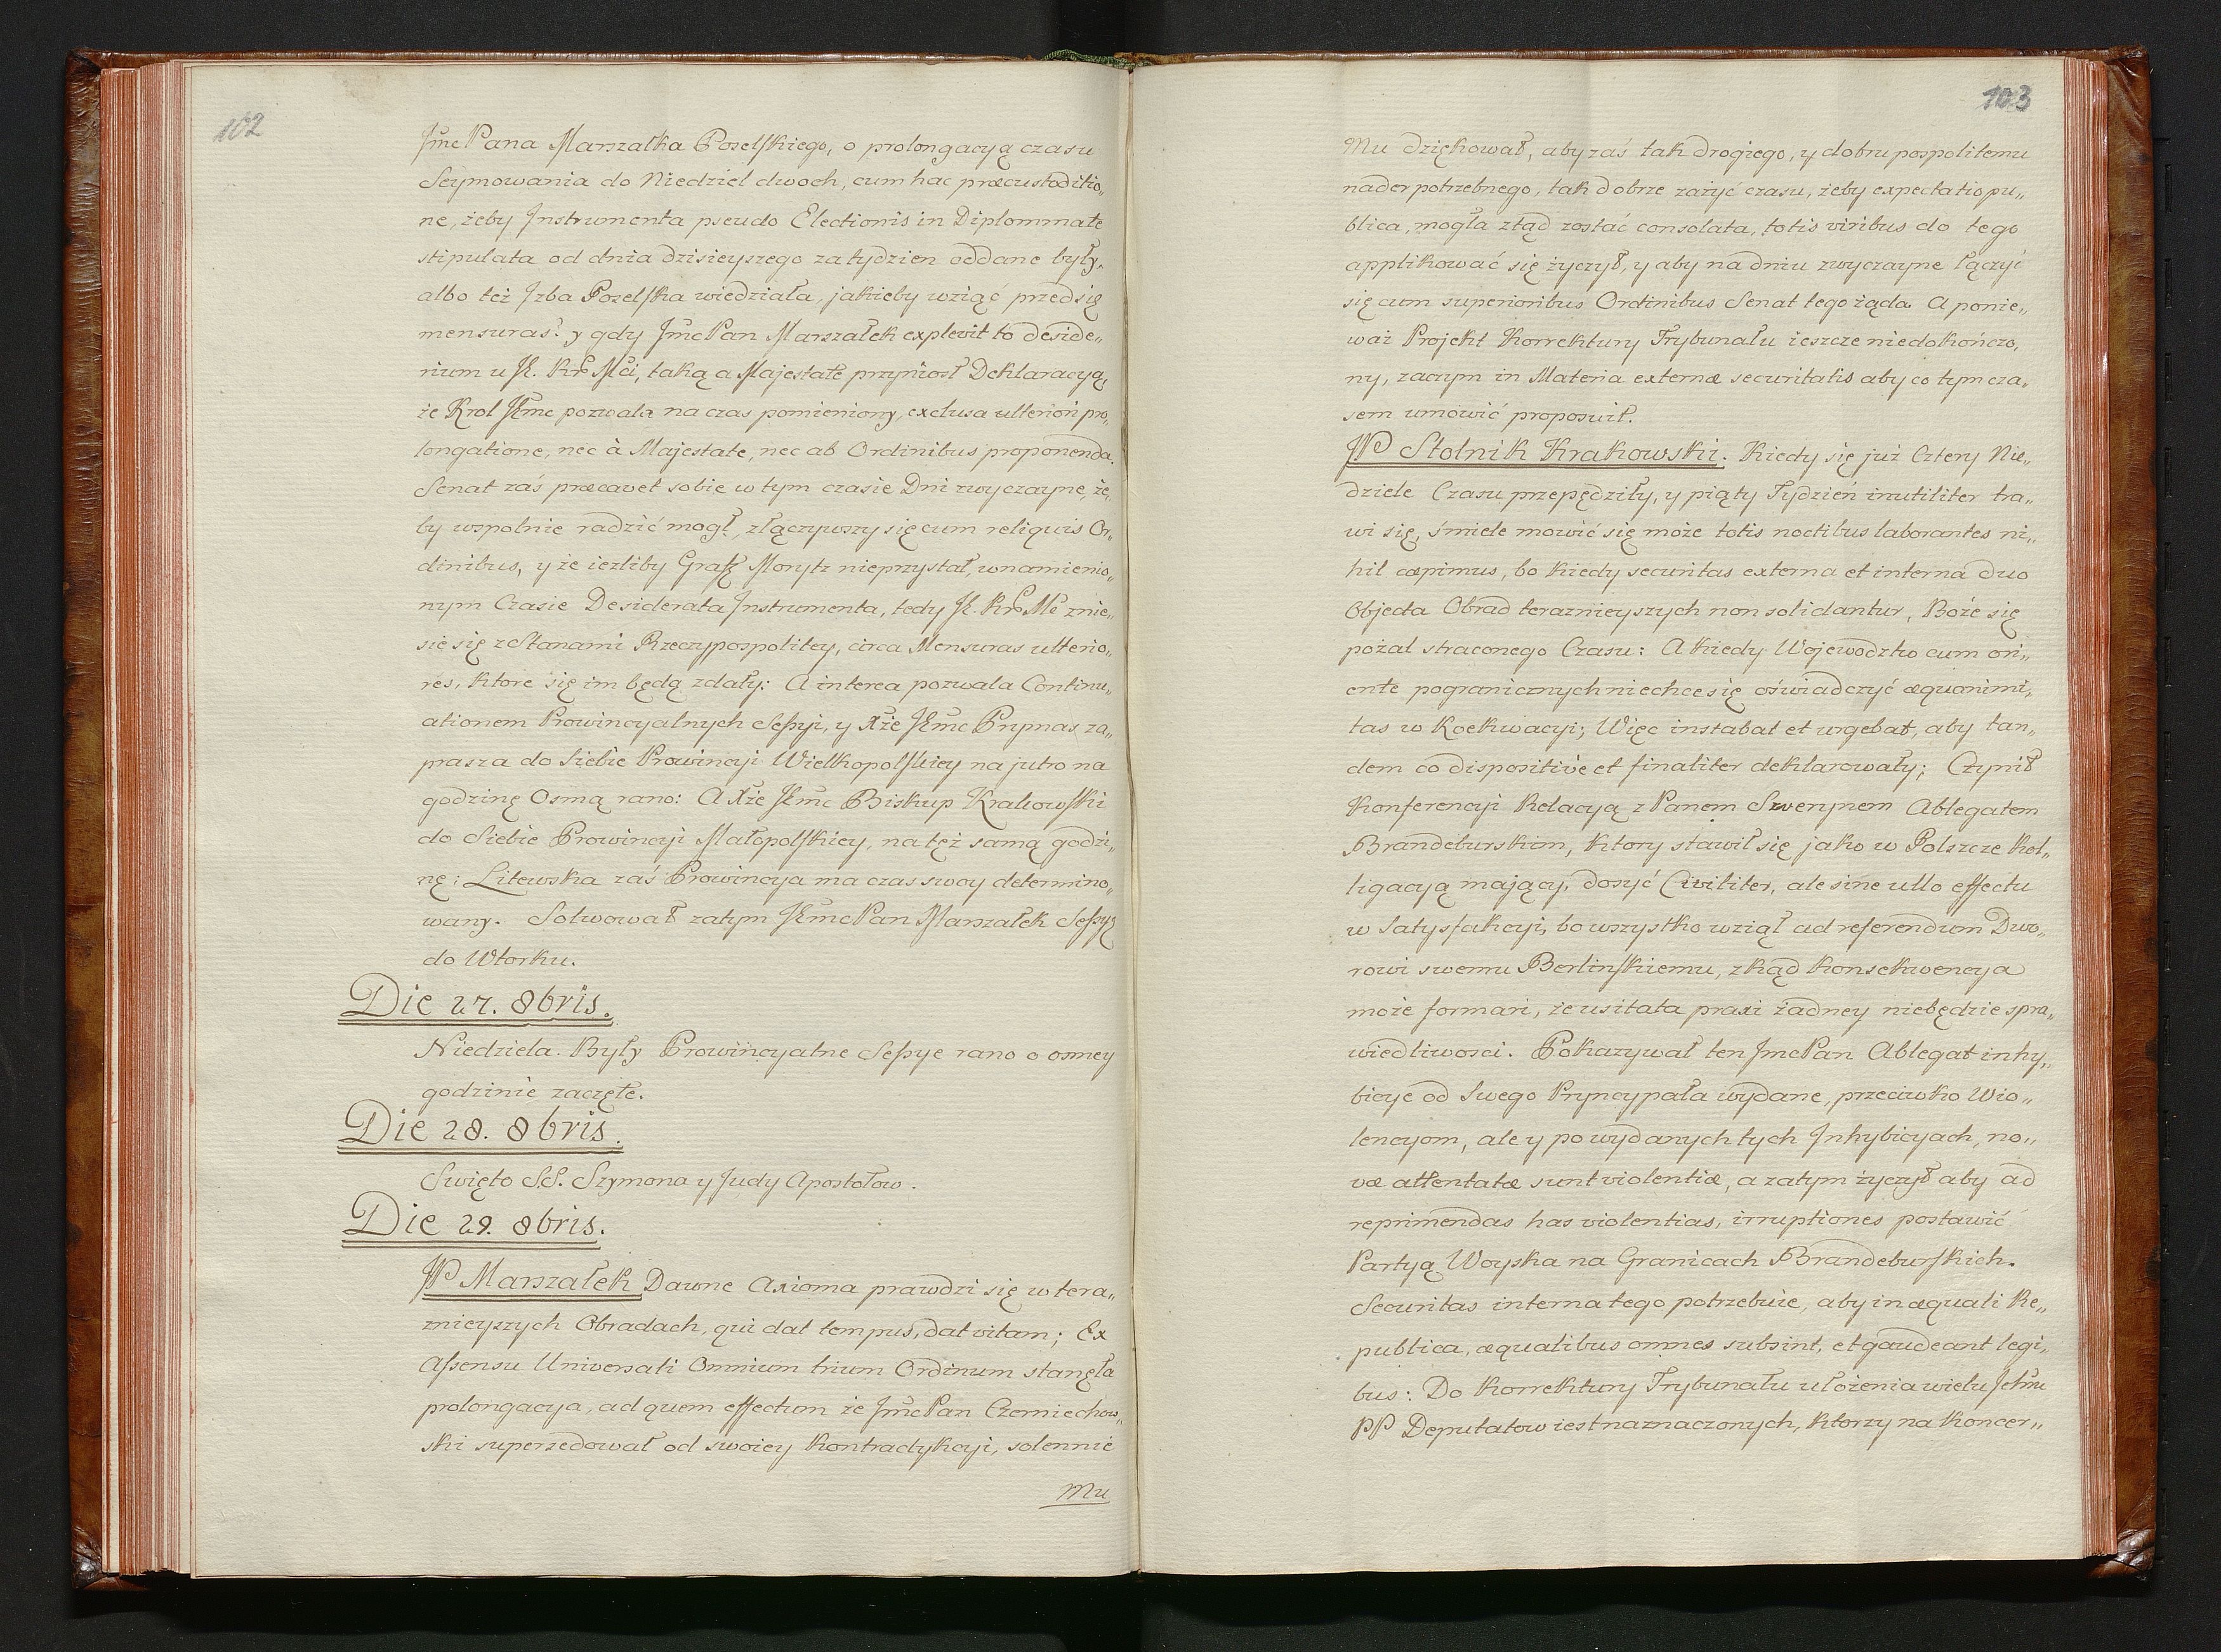 102
Jmc Pana Marszałka Poselskiego, o prolongacyą czasu
Seymowania do Niedziel dwoch, cum hac præcustoditio„
ne, żeby Instrumenta pseudo Electionis in Diplommate
stipulata od dnia dzisieyszego za tydzien oddane były,
albo też Izba Poselska wiedziała, jakieby wziąć przed się
mensuras? y gdy Jmc Pan Marszałek explevit to deside„
rium u J. Kr Mci, taką a Majestate przyniosł Deklaracyą,
że Krol Jmc pozwala na czas pomieniony, exclusa ulteriori pro„
longatione, nec à Majestate, nec ab Ordinibus proponenda.
Senat zaś præcavet sobie w tym czasie Dni zwyczayne, że„
by wspolnie radzić mogł, złączywszy się cum reliquis Or„
dinibus, y że ieżliby Graff Morytz nieprzystał, w namienio„
nym Czasie Desiderata Instrumenta, tedy J. Kr Mć znie„
sie się z Stanami Rzeczypospolitey, circa Mensuras ulterio„
res, ktore się im będą zdały: A interea pozwala Continu„
ationem Prowincyalnych Sessyi, y Xże Jmc Prymas za„
prasza do Siebie Prowincyi Wielkopolskiey na jutro na
godzinę Osmą rano: A Xże Jmc Biskup Krakowski
do Siebie Prowincyi Małopolskiey, na tęż samą godzi„
nę; Litewska zaś Prowincya ma czas swoy determino„
wany. Solwował zatym Jmc Pan Marszałek Sessyę
do Wtorku.
Die 27. 8bris.
Niedziela. Były Prowincyalne Sessye rano o osmey
godzinie zaczęte.
Die 28. 8bris.
Swięto S.S. Szymona y Judy Apostołow.
Die 29. 8bris.
JP Marszałek Dawne Axioma prawdzi się w tera„
znieyszych Obradach, qui dat tempus, dat vitam; Ex
Assensu Universali Omnium trium Ordinum stanęła
prolongacya, ad quem effectum że Jmc Pan Czerniechow„
ski supersedował od swoiey Kontradykcyi, solennie
Mu
103
Mu dziękował, aby zaś tak drogiego, y dobru pospolitemu
nader potrzebnego, tak dobrze zażyć czasu, żeby expectatio pu„
blica, mogła ztąd zostać consolata, totis viribus do tego
applikować się życzył, y aby na dniu zwyczayne łączyć
się cum superioribus Ordinibus Senat tego żąda. A ponie„
waż Projekt Korrektury Trybunału ieszcze niedokończo„
ny, zaczym in Materia externæ securitatis aby co tym cza„
sem umowić proposuit.
JP Stolnik Krakowski. Kiedy się już Cztery Nie„
dziele Czasu przepędziły, y piąty Tydzień inutiliter tra„
wi się, śmiele mowić się może totis noctibus laborantes ni„
hil cæpimus, bo kiedy securitas externa et interna duo
Objecta Obrad teraznieyszych non solidantur, Boże się
pożal straconego Czasu: A kiedy Wojewodztwo cum ori„
ente pogranicznych niechce się oświadczyć æquanimi„
tas w Koekwacyi; Więc instabat et urgebat, aby tan„
dem co dispositivè et finaliter deklarowały; Czynił
Konferencyi Relacyą z Panem Swerynem Ablegatem
Brandeburskim, ktory stawił się jako w Polszcze Kol„
ligacyą mający, dosyć Civiliter, ale sine ullo effectu
w Satysfakcyi, bo wszystko wziął ad referendum Dwo„
rowi swemu Berlinskiemu, zkąd Konsekwencya
może formari, że usitata praxi żadney niebędzie spra„
wiedliwosci. Pokazywał ten Jmc Pan Ablegat inhy„
bicye od Swego Pryncypała wydane, przeciwko Wio„
lencyom, ale y po wydanych tych Inhybicyach, no„
væ attentatæ sunt violentiæ, a zatym życzył aby ad
reprimendas has violentias, irruptiones postawić
Partyą Woyska na Granicach Brandeburskich.
Securitas interna tego potrzebuie, aby in æquali Re„
publica, æqualibus omnes subsint, et gaudeant legi„
bus: Do Korrektury Trybunału ułożenia wielu Ichm
PP Deputatow iest naznaczonych, ktorzy na Koncer„